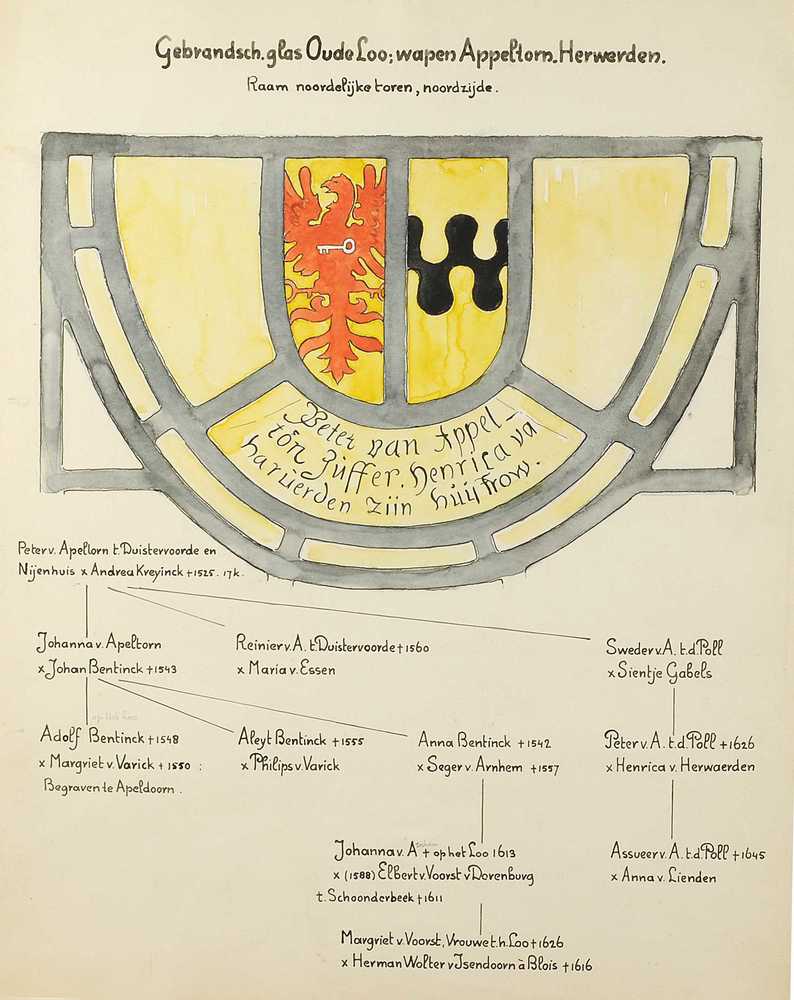 Gebrandsch. glas Oude Loo; wapen Appeltorn. Herwerden.
Raam noordelijke toren, noordzijde.
Peter van Appel-
tôn Züffer. Henrica vā
harüerden zijn hüÿfrow.
Peter v. Apeltorn t. Duistervoorde en
Nijenhuis x Andrea Kreyinck † 1525. 17k.
Johanna v. Apeltorn
x Johan Bentinck † 1543
Reinier v. A. t. Duistervoorde † 1560
x Maria v. Essen
Sweder v. A. t. d. Poll
x Sientje Gabels
op het Loo
Adolf Bentinck † 1548
x Margriet v. Varick † 1550 :
Begraven te Apeldoorn.
Aleyt Bentinck † 1555
x Philips v. Varick
Anna Bentinck † 1542
x Seger v. Arnhem † 1557
Peter v. A. t. d. Poll † 1626
x Henrica v. Herwaerden
Johanna v. A † op het Loo 1613
x (1588) Elbert v. Voorst v Dorenburg
t. Schoonderbeek † 1611
Assueer v. A. t. d. Poll † 1645
x Anna v. Lienden
Margriet v. Voorst, Vrouwe t. h. Loo † 1626
x Herman Wolter v Isendoorn à Blois † 1616